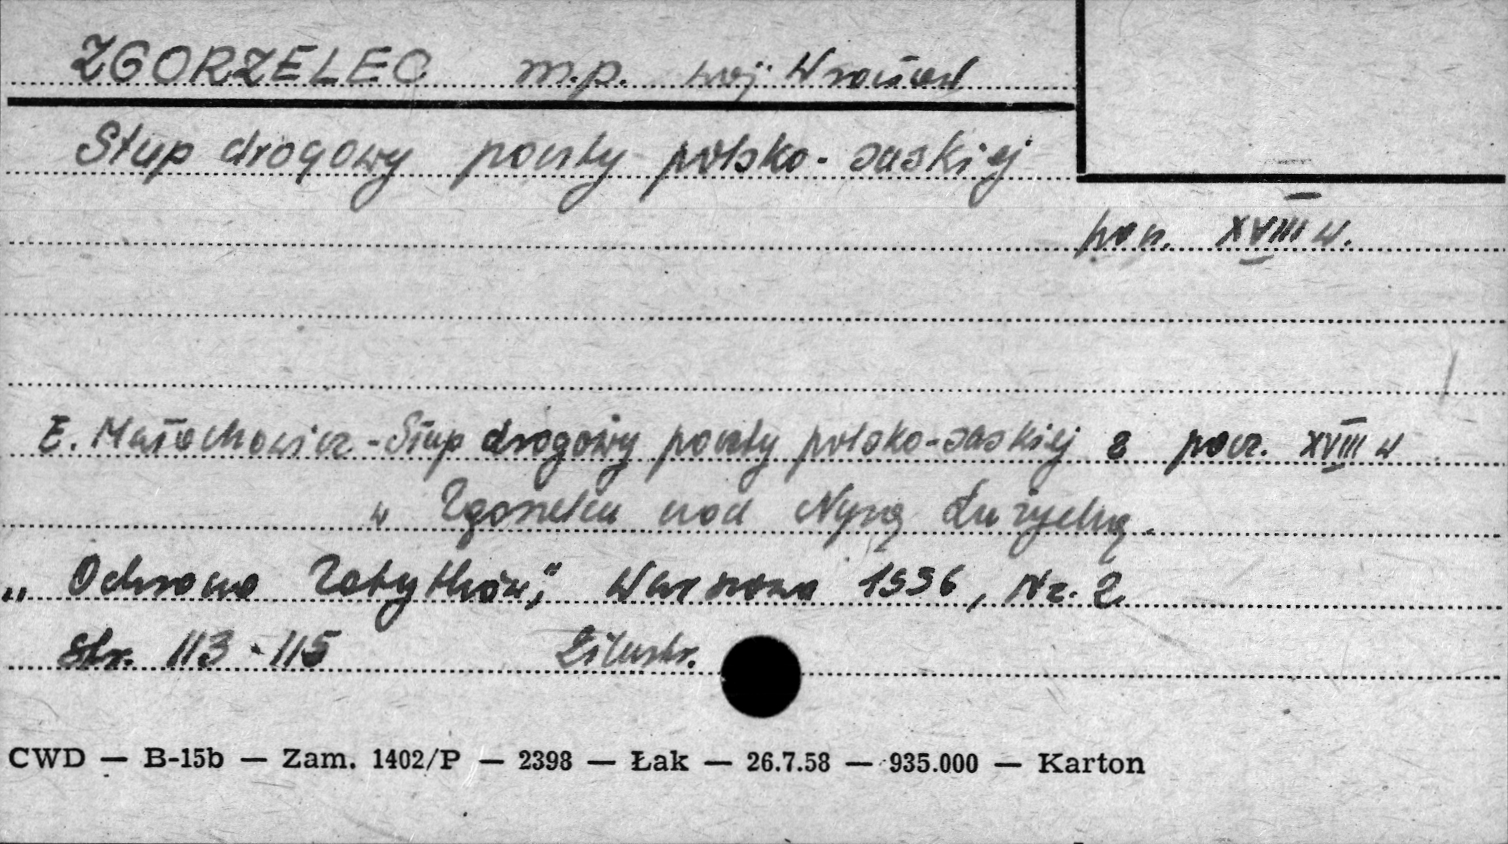 ZGORZELEC m.p. woj. Wrocław
Słup drogowy poczty polsko-saskiej
pocz. XVIII w.
E. Małachowicz - Słup drogowy poczty polsko-saskiej z pocz. XVIII w
w Zgorzelcu nad Nysą Łużycką.
„Ochrona Zabytków", Warszawa 1956, Nr. 2
Str. 113-115 Z ilustr.
CWD — B-15b — Zam. 1402/P — 2398 — Łak — 26.7.58 — 935.000 — Karton